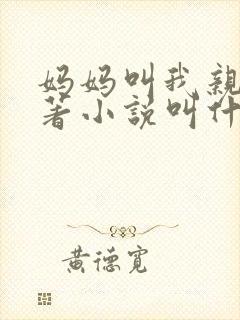 妈妈叫我親
著小説叫什
黄德寬